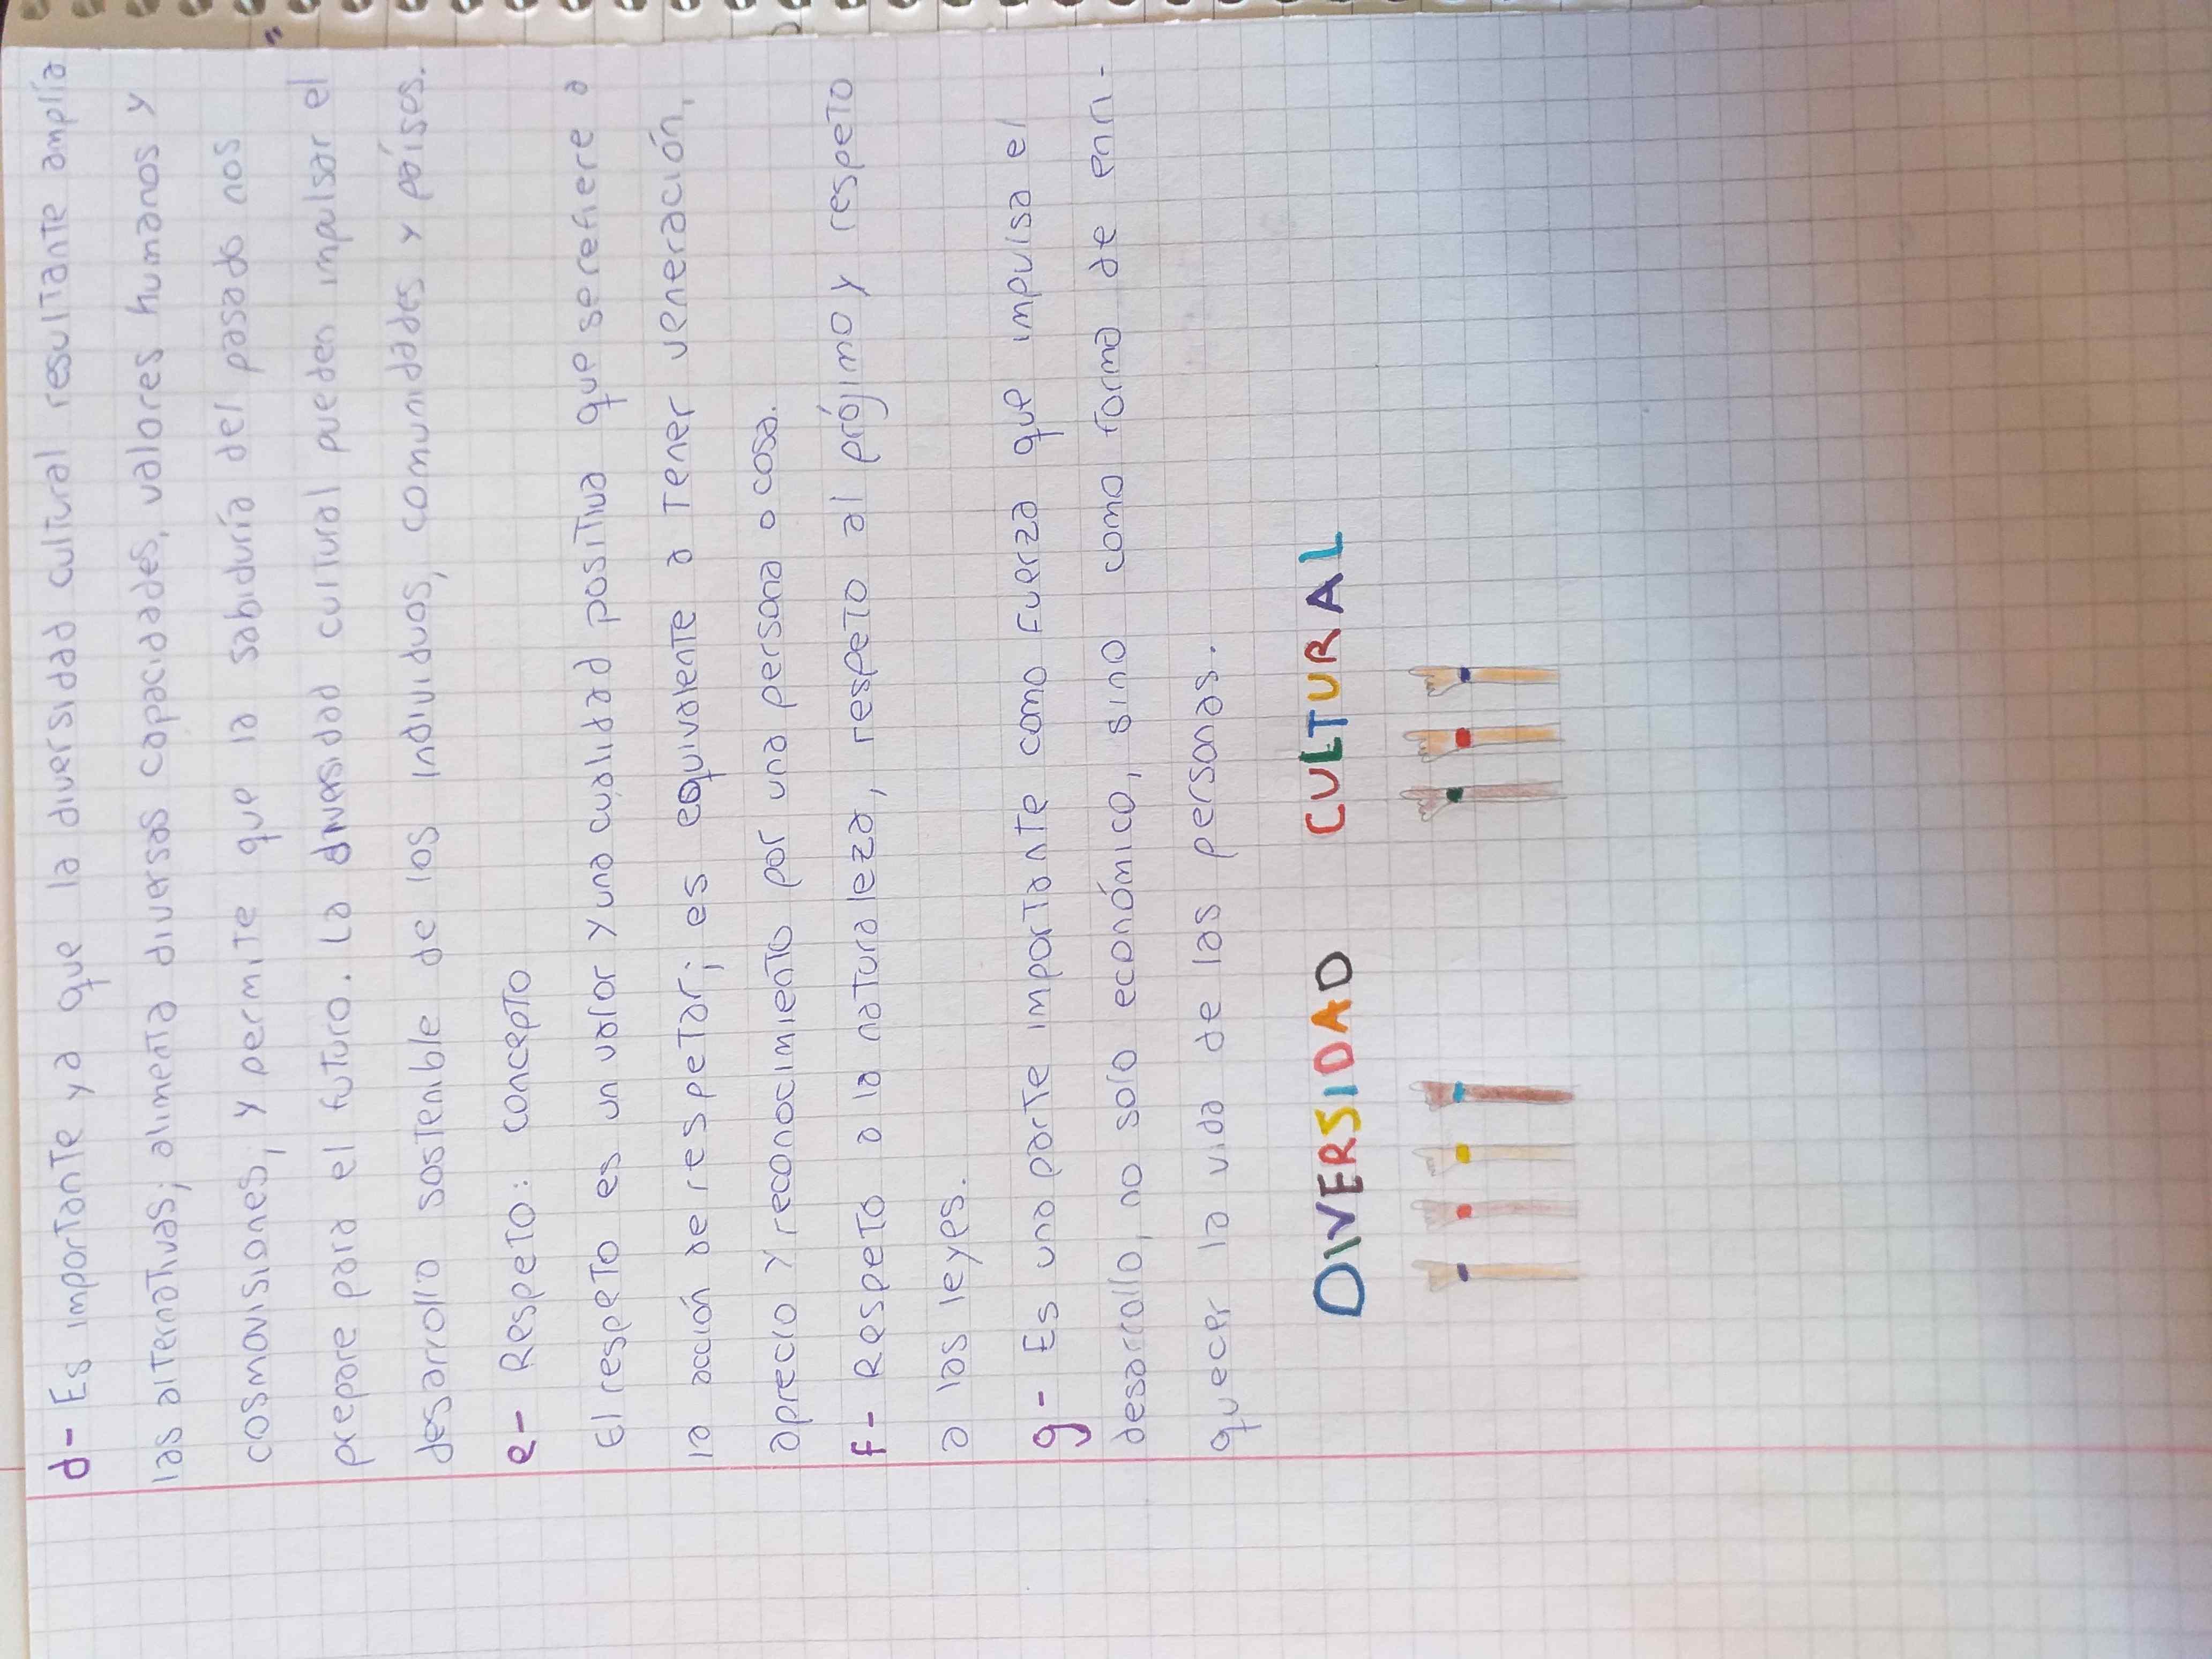 d- Es importante ya que la diversidad cultural resultante amplía
las alternativas; alimenta diversas capacidades, valores humanos y
cosmovisiones; y permite que la sabiduría del pasado nos
prepare para el futuro. La diversidad cultural pueden impulsar el
desarrollo sostenible de los individuos, comunidades y países.
e- Respeto: concepto
El respeto es un valor y una cualidad positiva que se refiere a
la acción de respetar; es equivalente a tener veneración,
aprecio y reconocimiento por una persona o cosa.
f- Respeto a la naturaleza, respeto al prójimo y respeto
a las leyes.
g- Es una parte importante como fuerza que impulsa el
desarrollo, no solo económico, sino como forma de enri-
quecer la vida de las personas.
DIVERSIDAD CULTURAL